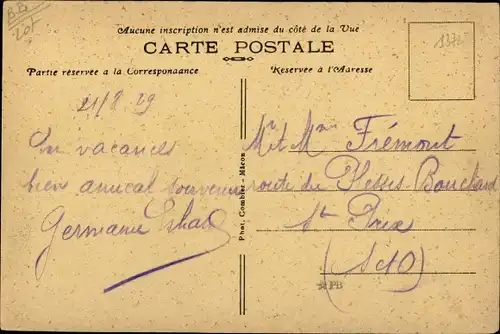 Aucune inscription n'est admise du côté de la Vue
CARTE POSTALE
Partie réservée a la Correspondance
Réservée à l'Adresse
21/8 29
En vacances
bien amical souvenir
Germaine
Mr et Mme Frémont
route du Plessis Bouchard
St Prix
(S et O)
Phot. Combier - Mâcon
PB